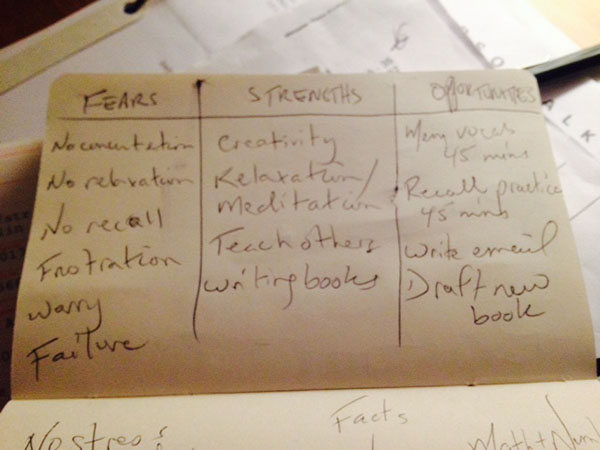 FEARS
STRENGTHS
OPPORTUNITIES
No concentration
No relaxation
No recall
Frotration
Worry
Failure
Creativity
Relaxation/
Meditation
Teach others
Writing books
Mem vocab
45 mins
Recall practice
45 mins
Write email
Draft new
book
No stress
Facts